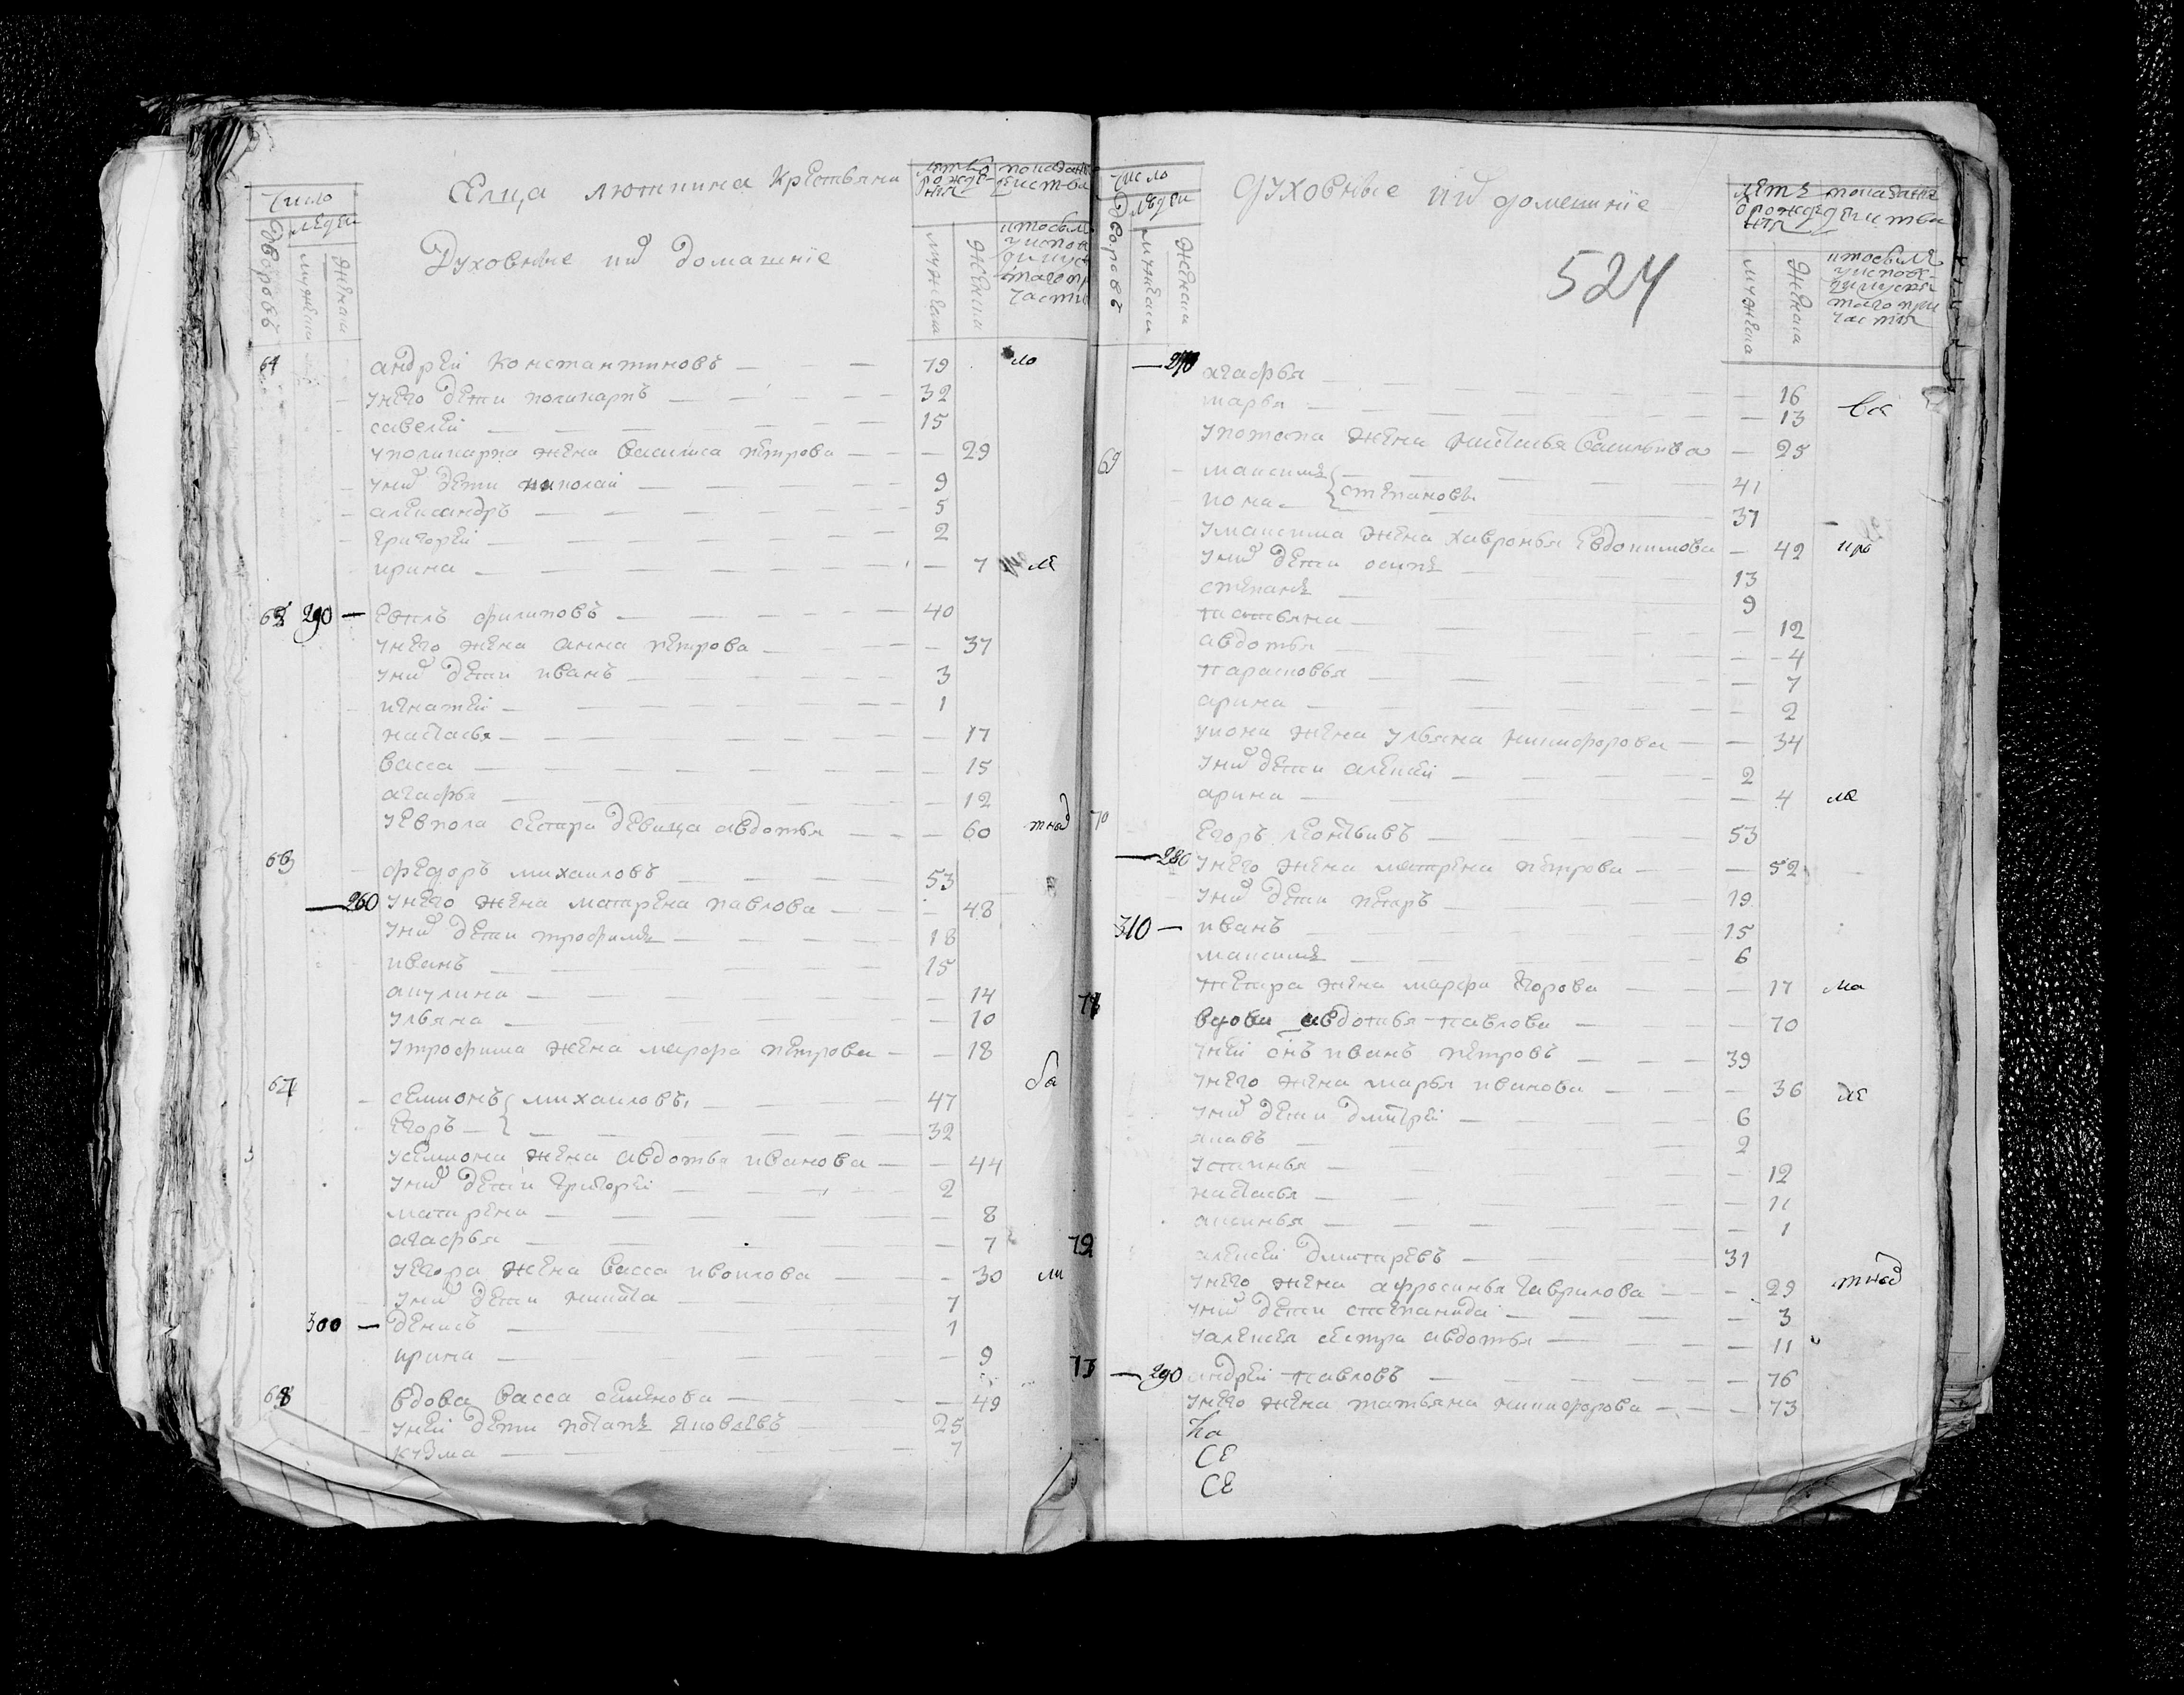 число
людеи
дворовъ
мужеска
женска
Селца лютинина крестьяня
Духовные ихъ домашние
мужеска
женска
64 андреи константиновъ 79 ло
у него дети поликарпъ 32
савелеи 15
у поликарпа жена василиса петрова 29
у них дети николаи 9
александръ 5
григореи 2
ирина 7 ле
65 290 — филиповъ 40
у него жена анна петрова 37
у них дети иванъ 3
игнатеи 1
настасья 17
васса 15
агафья 12
сестра девица авдотья 60 тнад
66 федоръ михаиловъ 53
— 260 у него жена матрена павлова 48
у них дети трофимъ 18
иванъ 15
акулина 14
ульяна 10
у трофима жена марфа петрова 18
ба
67 семионъ михаиловы 47
егоръ 32
у семиона жена авдотья иванова 44
у них дети григореи 2
матрена 8
агафья 7
у егора жена васса 30 ли
у них дети никита 7
300 — денисъ 1
ирина 9
68 вдова васса семенова 49
у неи дети потапъ яковлевъ 25
кузма 7
число
дворовъ
людеи
мужеска
женска
Духовные ихъ домашние
524
мужеска
женска
— 270 агафья 16
марья 13 вя
у потапа жена настасья васильива 25
69 максимъ степановы 41
иона 37
у максима жена хавронья евдокимова 42 кра
у них дети осипъ 13
степанъ 9
татьяна 12
авдотья 4
парасковья 7
арина 2
у иона жена ульяна никифорова 34
у них дети алексеи 2
арина 4 ла
70 егоръ леонтьивъ 53
— 280 у него жена матрена петрова 52
у них дети петръ 19
310 — иванъ 15
максимъ 6
у петра жена марфа егорова 17 ма
71 вдова авдотья павлова 70
у неи снъ иванъ петровъ 39
у него жена марья иванова 36 де
у них дети дмитреи 6
яковъ 2
устинья 12
настасья 11
аксинья 1
72 алексеи дмитревъ 31
у него жена афросинья гаврилова 29 тнад
у них дети степанида 3
у алексея сестра авдотья 11
73 — 290 андреи павловъ 76
у него жена татьяна никифорова 73
Ка
СЕ
СЕ